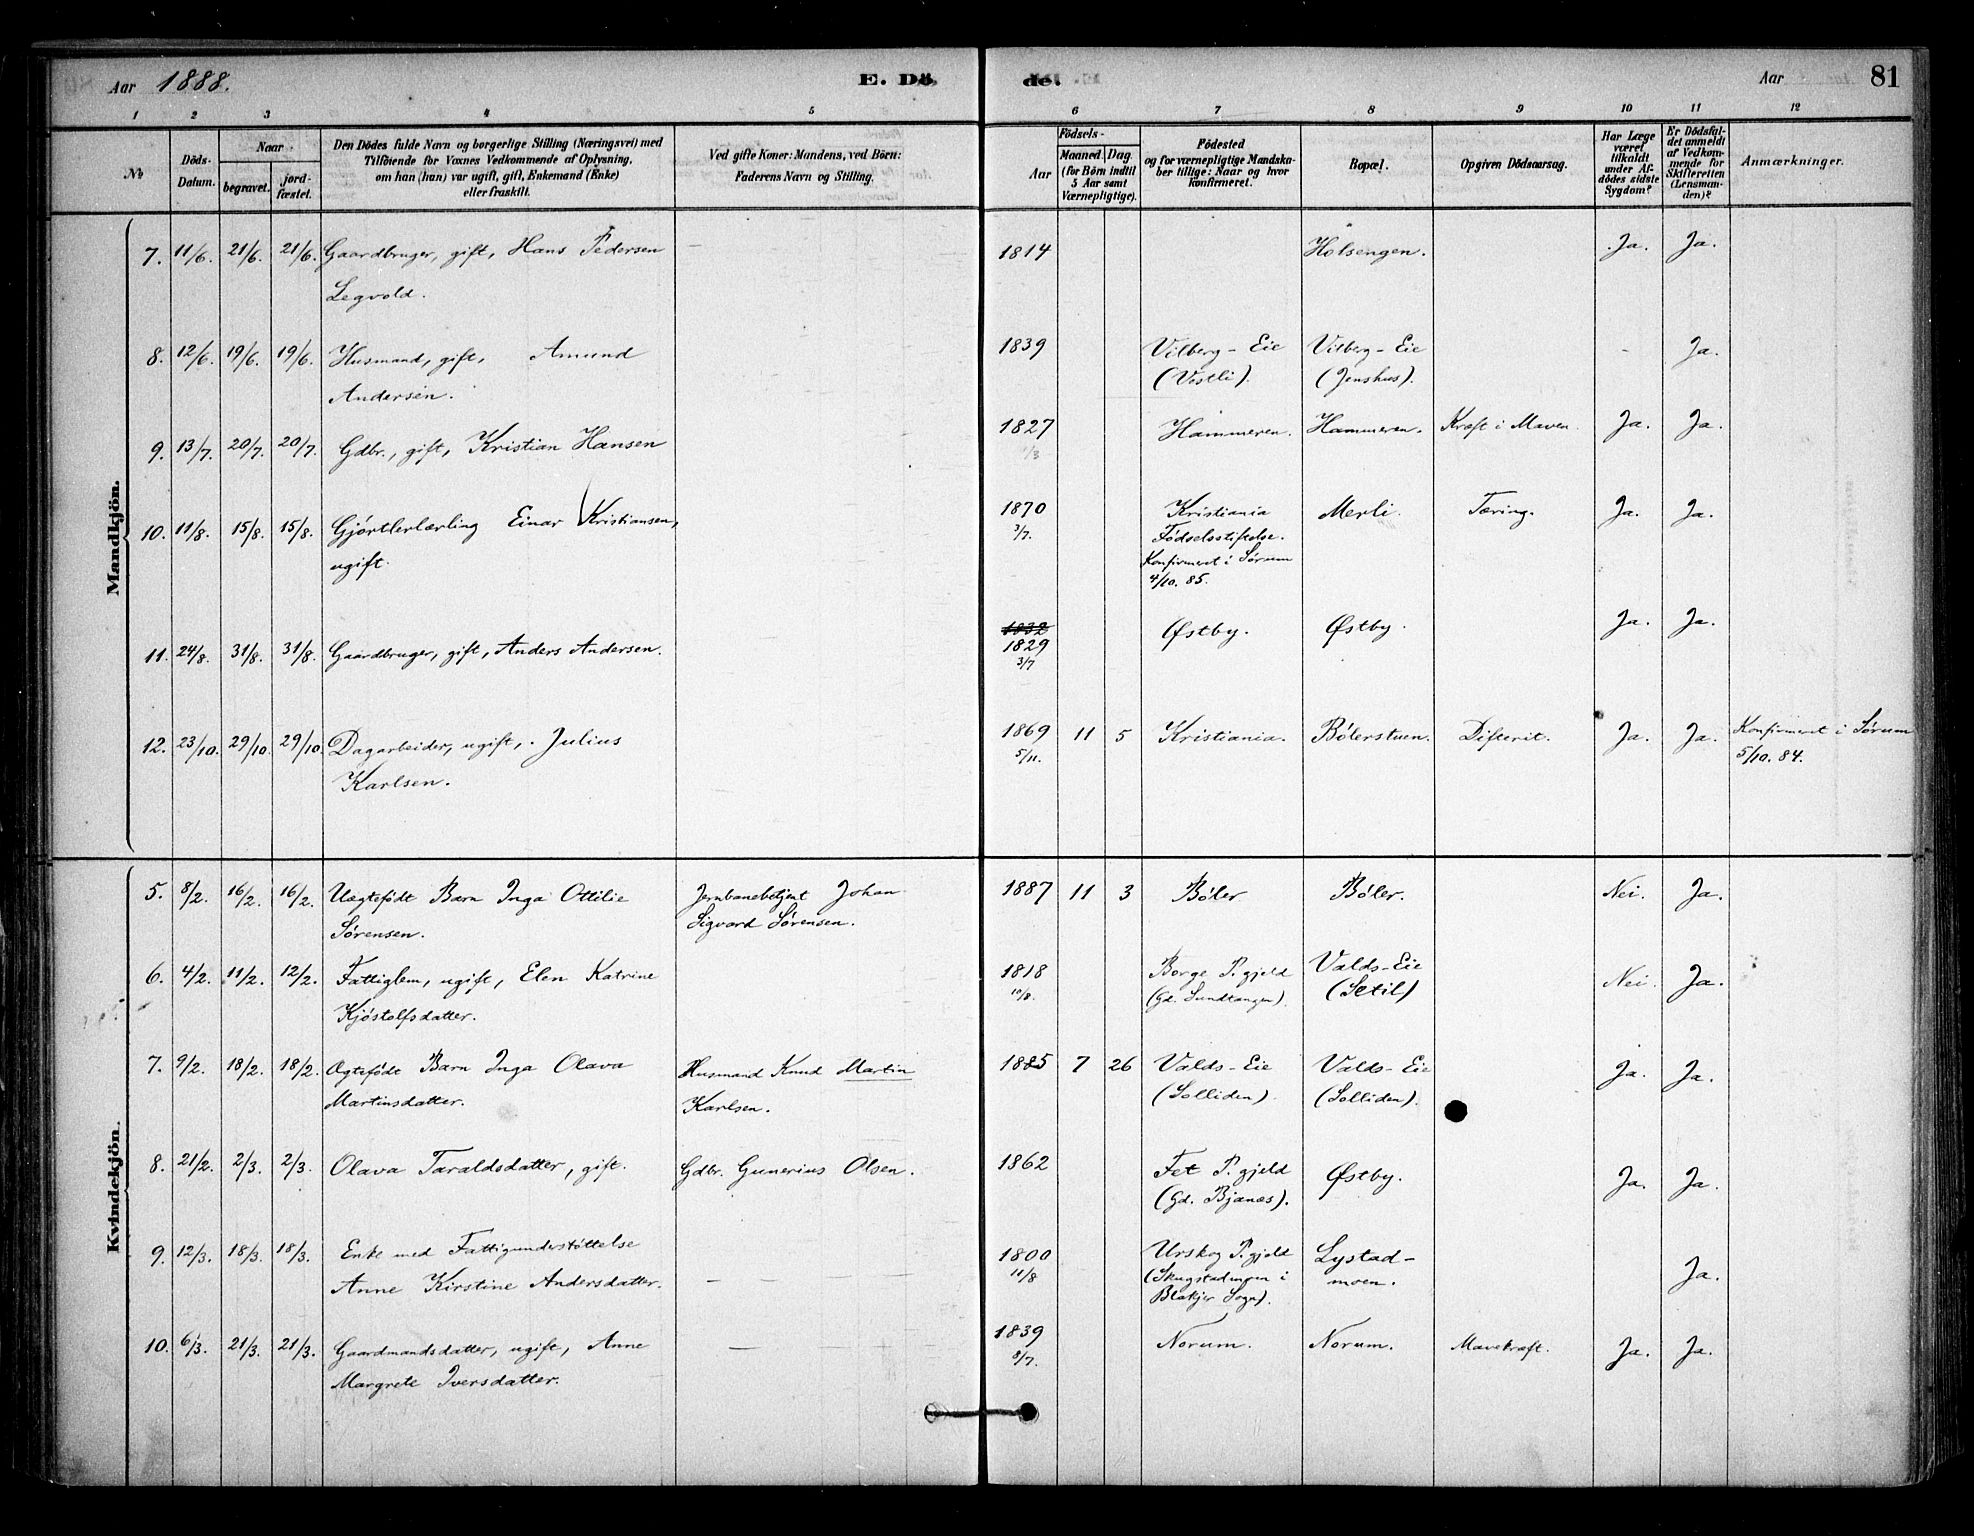 Aar 1888. E. Dö- de. Aar 81
1 2 3 4 5 6 7 8 9 10 11 12
No
Döds-Datum.
Naar
begravet.
jord-fæstet.
Den Dödes fulde Navn og borgerlige Stilling (Næringsvei) med
Tilföiende for Voxnes Vedkommende af Oplysning,
om han (hun) var ugift, gift, Enkemand (Enke)
eller fraskilt.
Ved gifte Koner: Mandens, ved Börn:
Faderens Navn og Stilling.
Födsels-
Aar
Maaned. Dag.
(for Börn indtil
5 Aar samt
Værnepligtige).
Födested
og for værnepligtige Mandska-
ber tillige: Naar og hvor
konfirmeret.
Bopæl.
Opgiven Dödsaarsag.
Har Læge
været
tilkaldt
under Af-
dödes sidste
Sygdom?
Er Dödsfal-
det anmeldt
af Vedkom-
mende for
Skifteretten
(Lensman-
den)?
Anmærkninger.
Mandkjön.
7. 11/6. 21/6. 21/6. Gaardbruger, gift, Hans Pedersen — 1814 Holsengen. Ja. Ja.
Legvold.
8. 12/6. 19/6. 19/6. Husmand, gift, Amund 1839 Vilberg-Eie Vilberg-Eie - Ja.
Andersen. (Vestli). (Jenshus).
9. 13/7. 20/7. 20/7. Gdbr., gift, Kristian Hansen 1827 Hammeren. Hammeren. Kræft i Maven. Ja. Ja.
1/3
10. 11/8. 15/8. 15/8. Gjørtlerlærling Einar Kristiansen, 1870 Kristiania Merli. Tæring. Ja. Ja.
ugift. 3/7. Fødselsstiftelse.
Konfirmeret i Sørum
4/10. 85.
11. 24/8. 31/8. 31/8. Gaardbruger, gift, Anders Andersen. 1832 Østby. Østby. Ja. Ja.
1829
3/7
12. 23/10. 29/10. 29/10 Dagarbeider, ugift, Julius 1869 11 5 Kristiania. Bølerstuen. Difterit. Ja. Ja. Konfirmeret i Sørum
Karlsen. 5/11. 5/10. 84.
Kvindekjön.
5. 8/2. 16/2. 16/2. Uægtefødt Barn Inga Ottilie Jernbanebetjent Johan 1887 11 3 Bøler Bøler. Nei. Ja.
Sørensen. Sigvard Sørensen.
6. 4/2. 11/2. 12/2. Fattiglem, ugift, Elen Katrine 1818 Borge P.gjeld Valds-Eie Nei. Ja.
Kjøstolfsdatter. 10/8. (Gd. Sundtangen). (Setil)
7. 9/2. 18/2. 18/2. Ægtefødt Barn Inga Olava Husmand Knud Martin 1885 7 26 Valds-Eie Valds-Eie Ja. Ja.
Martinsdatter. Karlsen. (Solliden). (Solliden).
8. 21/2. 2/3. 2/3. Olava Taraldsdatter, gift. Gdbr. Gunerius Olsen. 1862 Fet P.gjeld Østby. Ja. Ja.
(Gd. Bjanæs).
9. 12/3. 18/3. 18/3. Enke med Fattigunderstøttelse 1800 Urskog P.gjeld Lystad- Ja.
Anne Kirstine Andersdatter. — — 11/8 (Skugstadengen i moen.
Blakjer Sogn).
10. 6/3. 21/3. 21/3. Gaardmandsdatter, ugift, Anne — — 1839 Norum. Norum. Mavekræft. Ja. Ja.
Margrete Iversdatter. 8/7.